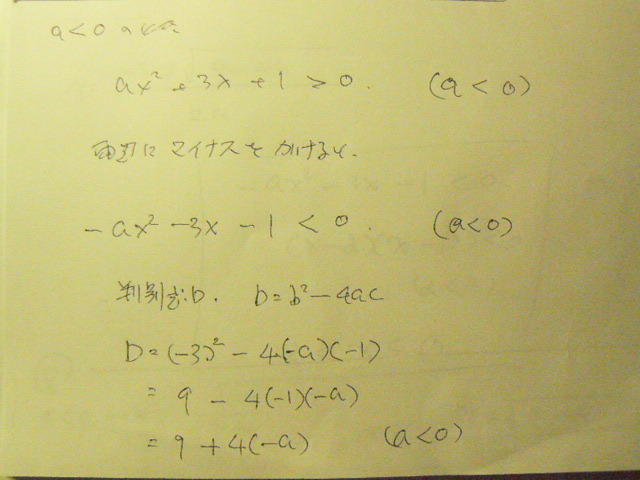 a<0のとき
ax²+3x+1>0. (a<0)
両辺にマイナスをかけると.
-ax²-3x-1<0. (a<0)
判別式:D. D=b²-4ac
D=(-3)²-4(-a)(-1)
=9-4(-1)(-a)
=9+4(-a) (a<0)